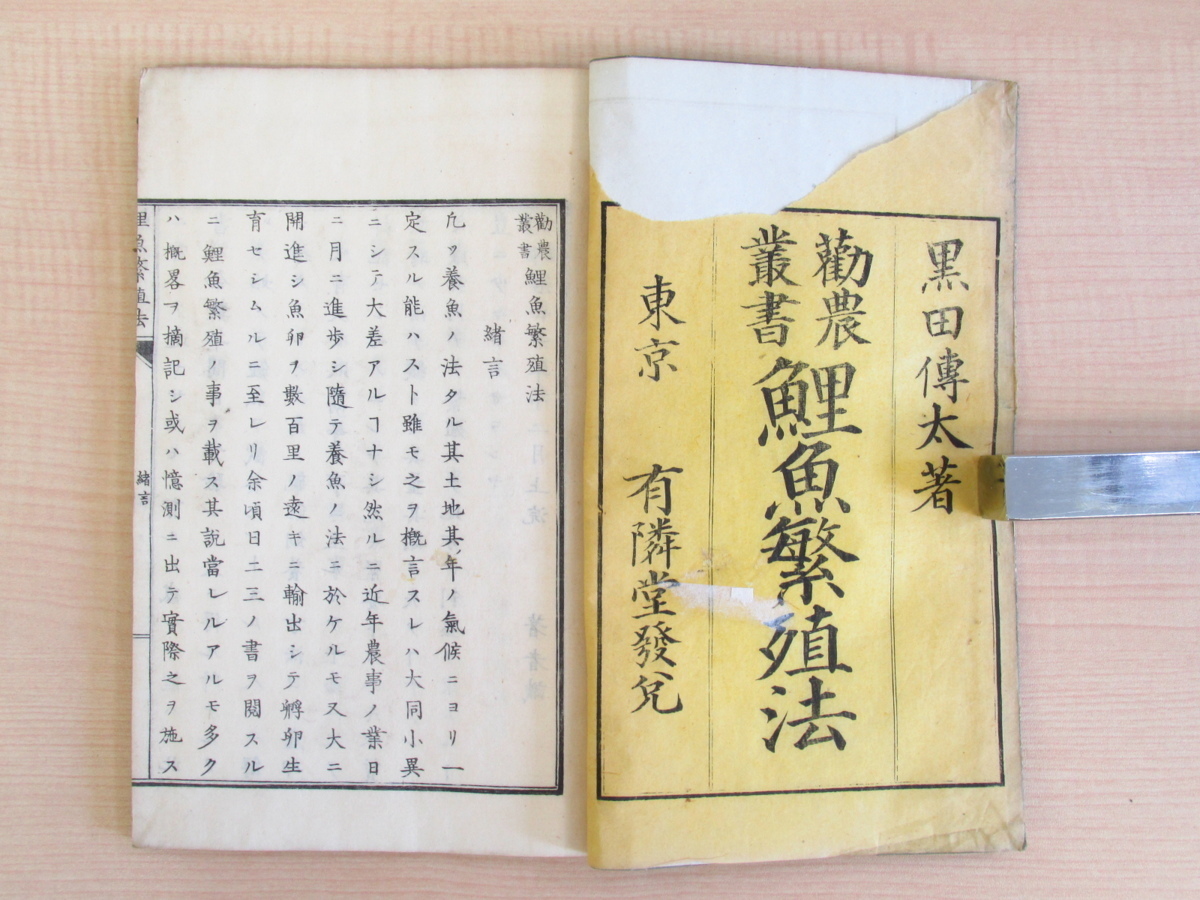 黒田傳太著
勸農
叢書
鯉魚繁殖法
東京　有隣堂發兌
勸農
叢書
鯉魚繁殖法
緒言
凡ソ養魚ノ法タル其土地其年ノ氣候ニヨリ一
定スル能ハスト雖モ之ヲ概言スレハ大同小異
ニシテ大差アルヿナシ然ルニ近年農事ノ業日
ニ月ニ進歩シ隨テ養魚ノ法ニ於ケルモ又大ニ
開進シ魚卵ヲ數百里ノ遠キニ輸出シテ孵卵生
育セシムルニ至レリ余頃日二三ノ書ヲ閲スル
ニ鯉魚繁殖ノ事ヲ載ス其說當レルアルモ多ク
ハ概畧ヲ摘記シ或ハ憶測ニ出テ實際之ヲ施ス
鯉魚繁殖法
緒言